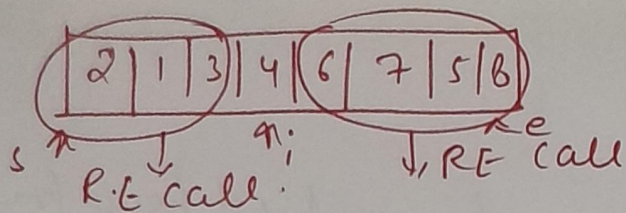 2 | 1 | 3 | 4 | 6 | 7 | 5 | 8
s i e
R.E Call. RE Call